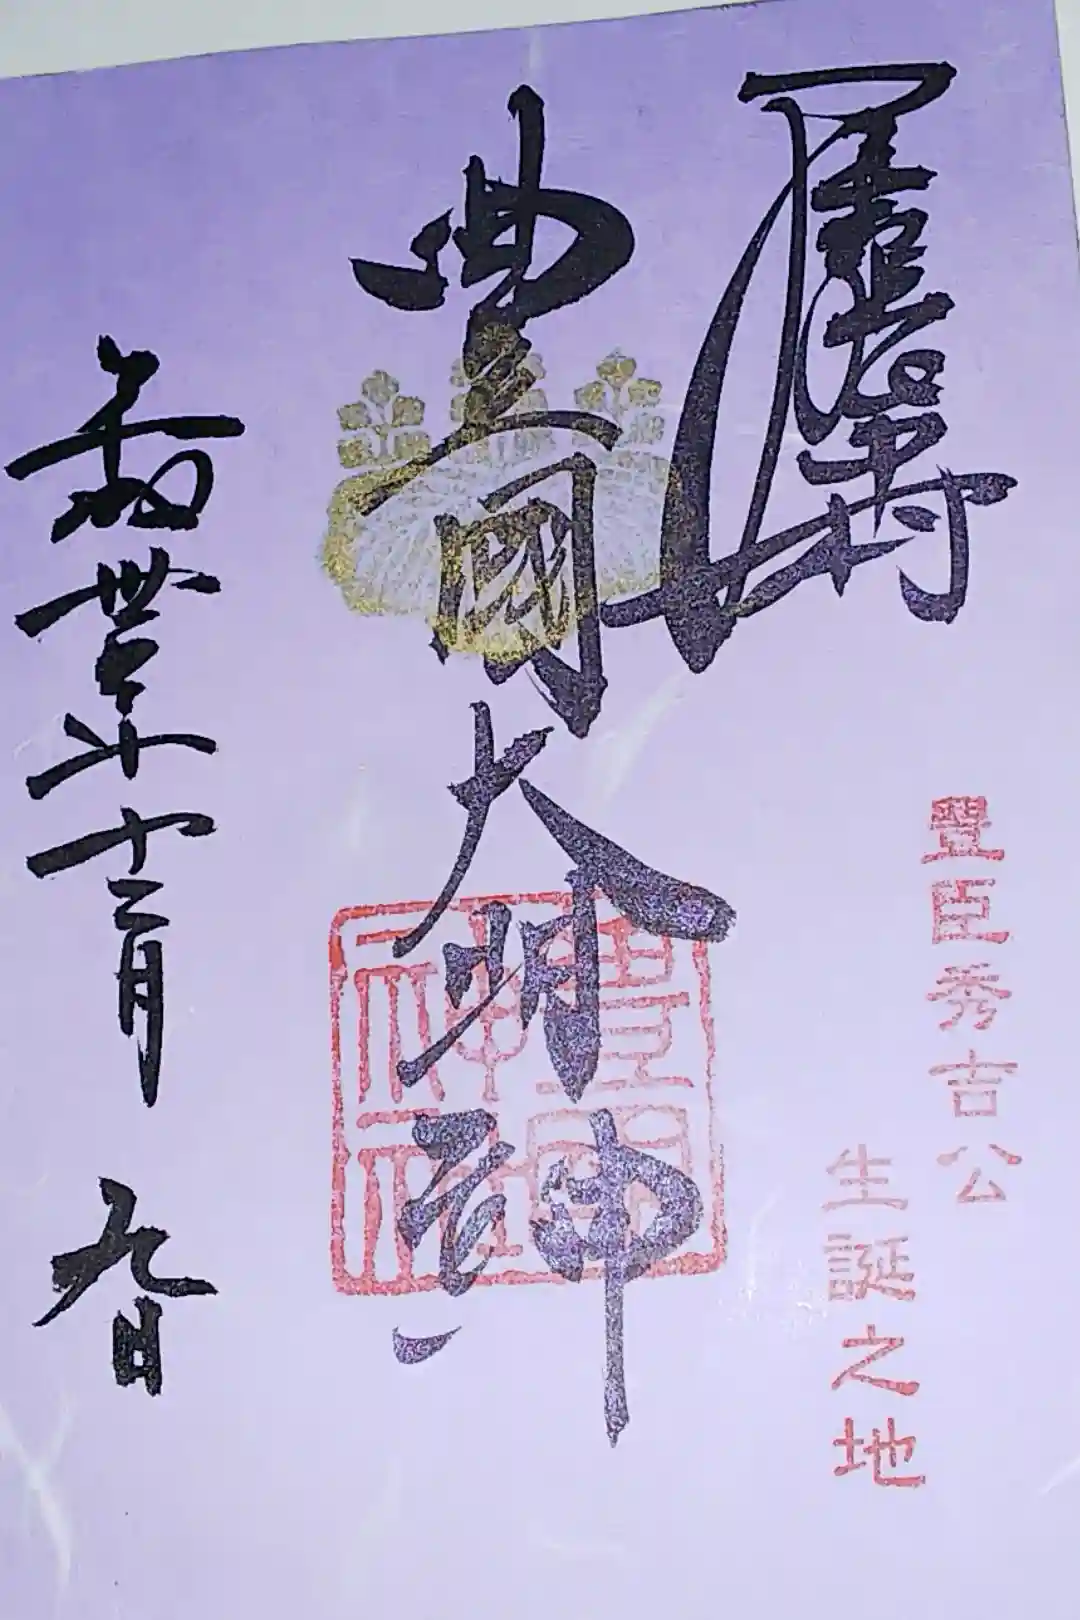 豐臣秀吉公
生誕之地
豊國大明神
豊國神社
平成卅年十二月九日